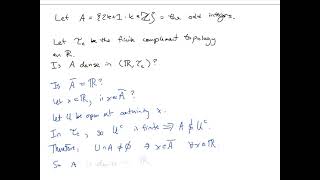 Let A = {2k+1 : k ∈ ℤ} = the odd integers.
Let 𝒯c be the finite complement topology
on ℝ.
Is A dense in (ℝ, 𝒯c)?
Is A̅ = ℝ?
Let x ∈ ℝ, is x ∈ A̅?
Let U be open set containing x.
In 𝒯c, so Uᶜ is finite ⟹ A ⊄ Uᶜ
Therefore, U ∩ A ≠ ∅ ⟹ x ∈ A̅ ∀x ∈ ℝ
So A is dense in ℝ